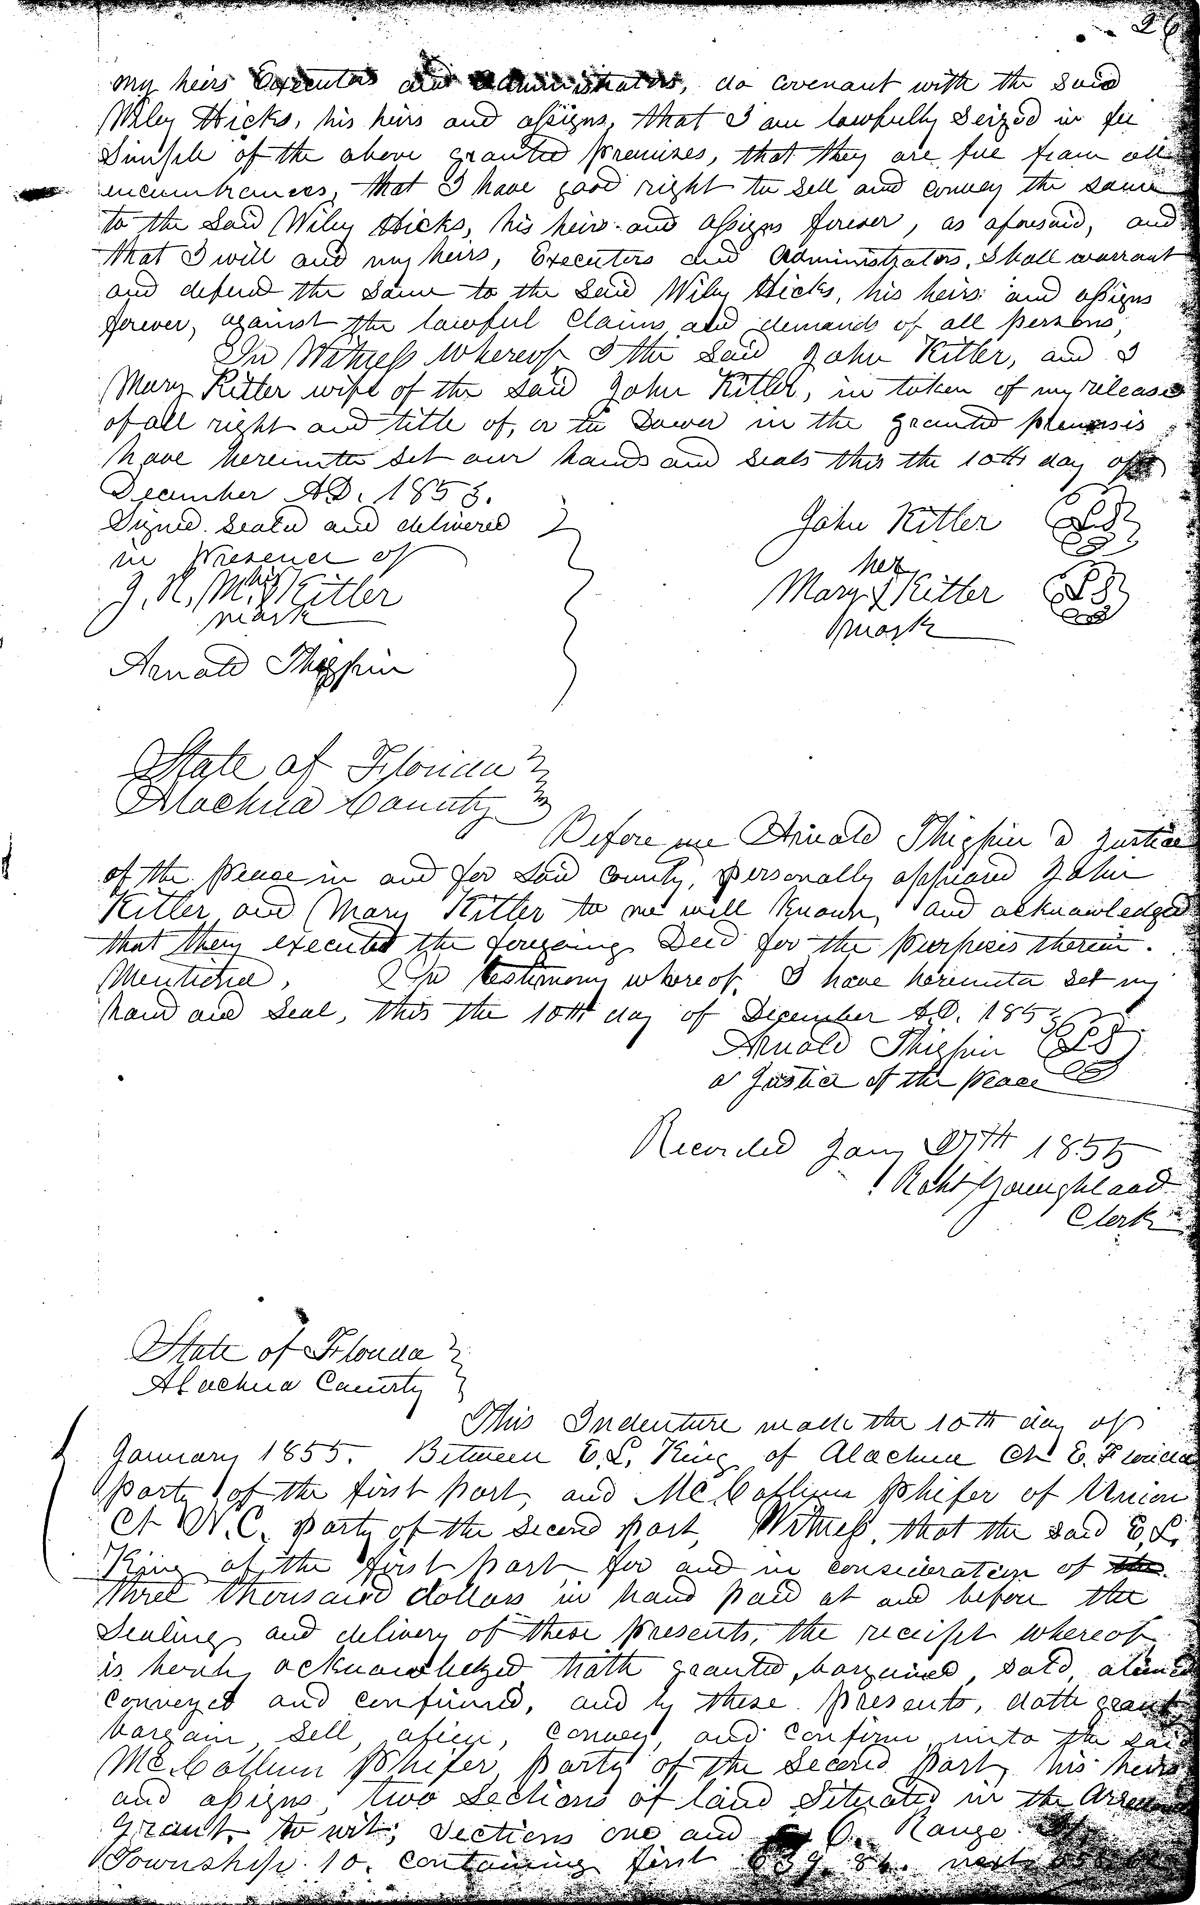 26
my heirs Executors and administrators, do covenant with the said
Wiley Hicks, his heirs and assigns, that I am lawfully Seized in fee
Simple of the above granted premises, that they are free from all
encumbrances, that I have good right to sell and convey the same
to the said Wiley Hicks, his heirs and assigns forever, as aforesaid, and
that I will and my heirs, Executors and Administrators, Shall warrant
and defend the same to the said Wiley Hicks, his heirs and assigns
forever, against the lawful Claims and demands of all persons,
In Witness Whereof I the said John Kitler, and I
Mary Kitler wife of the said John Kitler, in token of my release
of all right and title of, or to Dower in the granted premises
have hereunto set our hands and seals this the 10th day of
December A.D. 1853.
Signed. Sealed and delivered
in presence of
John Kitler LS
his
her
J. N. M. X Kitler
Mary X Kitler LS
mark
mark
Arnold Thigpin
State of Florida
Alachua County
Before me Arnold Thigpin a Justice
of the Peace in and for said county, personally appeared John
Kitler and Mary Kitler to me well known, and acknowledged
that they executed the foregoing Deed for the purposes therein.
Mentioned. In testimony whereof, I have hereunto set my
hand and seal, this the 10th day of December A.D. 1853
Arnold Thigpin LS
a Justice of the Peace
Recorded Jany 27th 1855
Robt Youngblood
Clerk
State of Florida
Alachua County
This Indenture made the 10th day of
January 1855. Between E. L. King of Alachua Ct E. Florida
party of the first part, and McCallum Phifer of Union
Ct N. C. party of the second part, Witness, that the said E. L.
King of the first part for and in consideration of the
three thousand dollars in hand paid at and before the
Sealing and delivery of these presents, the receipt whereof
is hereby acknowledged hath granted, bargained, sold, aliened
conveyed and confirmed, and by these presents, doth grant
bargain, sell, alien, convey, and confirm unto the said
McCallum Phifer party of the Second part, his heirs
and assigns, two Sections of land Situated in the Arredondo
grant. to wit; Sections one and Range
Township 10. containing first 639 next